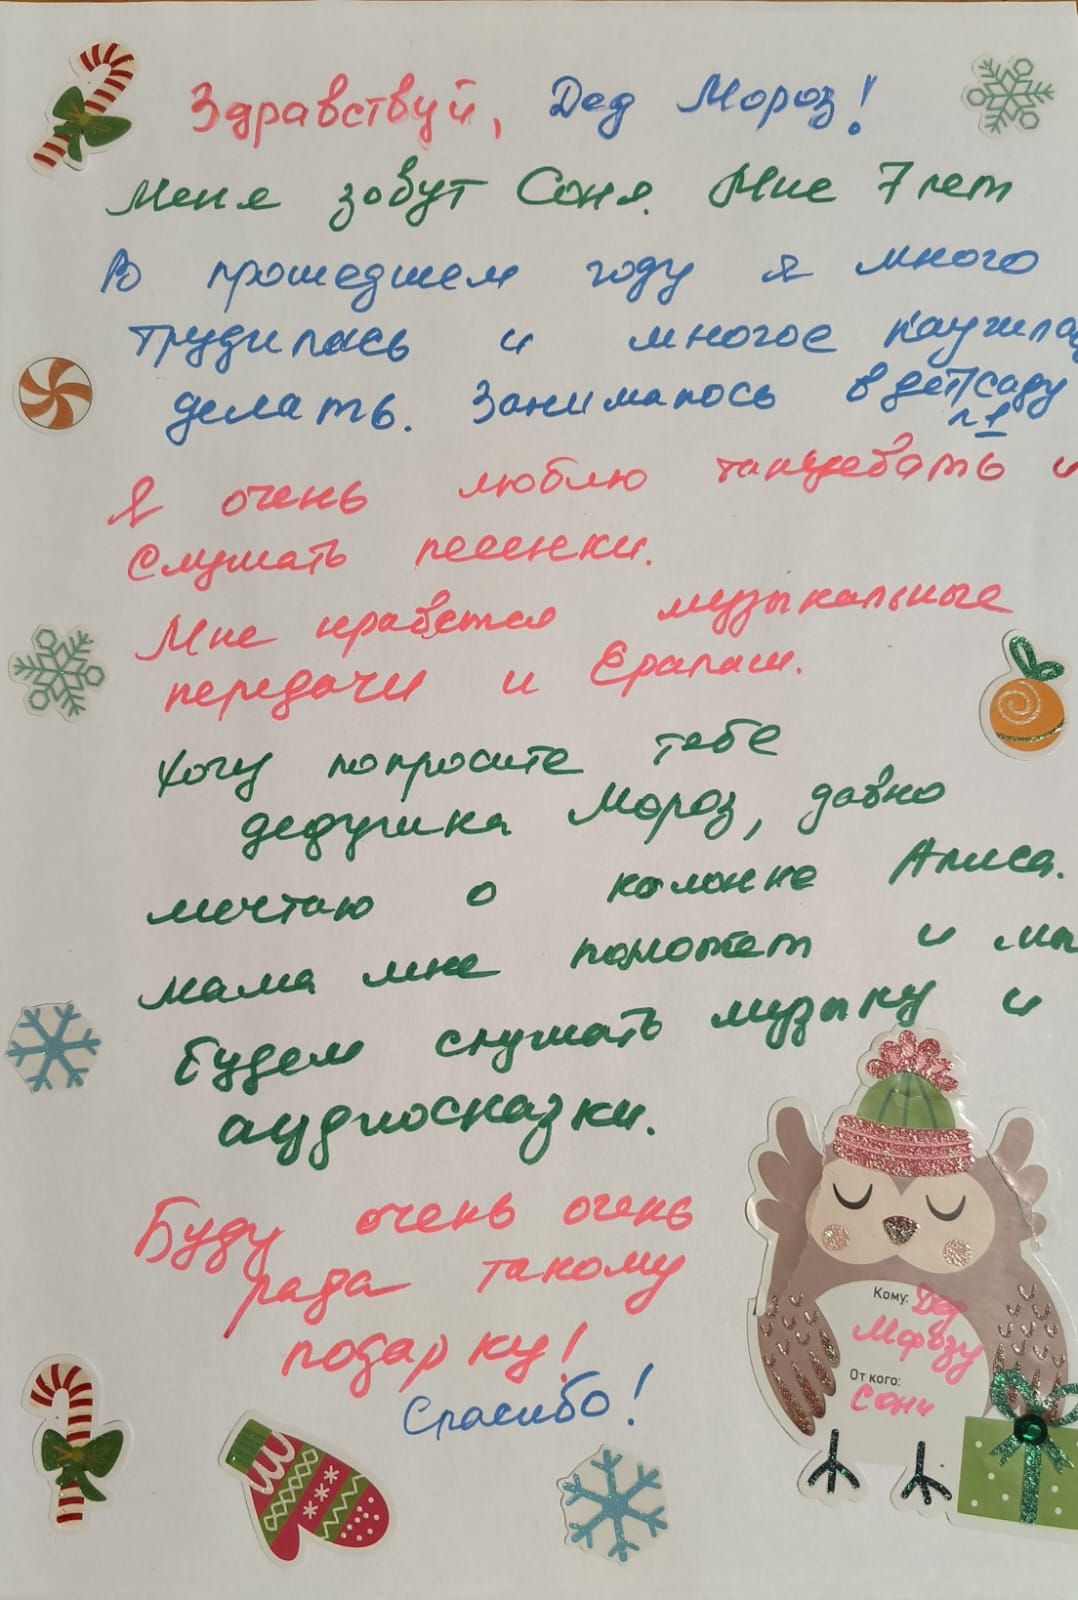 Здравствуй, Дед Мороз!
Меня зовут Соня. Мне 7 лет
В прошедшем году я много
трудилась и многое научилас
делать. Занималось в дет/саду
n 1
Я очень люблю танцевать и
слушать песенки.
Мне нравятся музыкальные
передачи и Ералаш.
Хочу попросить тебе
дедушка Мороз, давно
мечтаю о колонке Алиса.
мама мне поможет и мы
будем слушать музыку и
аудиосказки.
Буду очень очень
рада такому
подарку!
Спасибо!
Кому: Дед
Морозу
От кого:
Сони